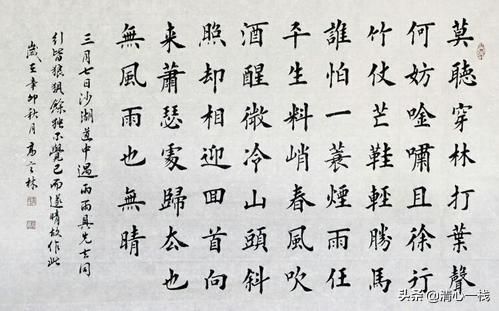 莫聽穿林打葉聲
何妨唫嘯且徐行
竹仗芒鞋輕勝馬
誰怕一蓑煙雨任
平生料峭春風吹
酒醒微冷山頭斜
照却相迎回首向
来蕭瑟處歸去也
無風雨也無晴
三月七日沙湖道中遇雨雨具先去同
行皆狼狽餘独不覺已而遂晴故作此
辛卯秋月
头条@清心一栈